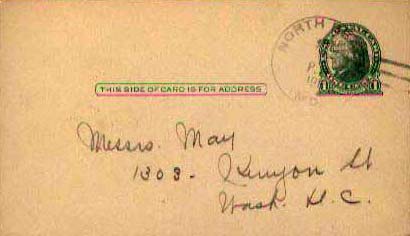 NORTH
THIS SIDE OF CARD IS FOR ADDRESS
1 1
Messrs. May
1303 - Kenyon St
Wash. D.C.